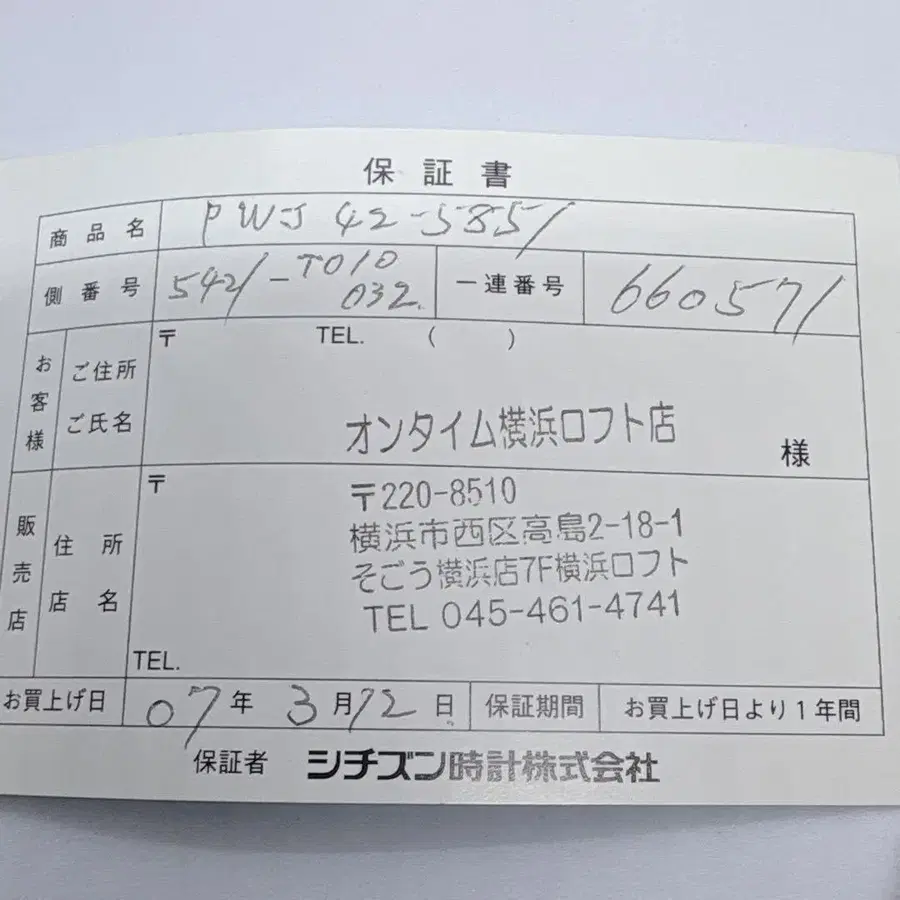 保証書
商品名 PWJ 42-5851
側番号 5421-T010
032. 一連番号 660571
お客様 ご住所 ご氏名 〒 TEL. ( )
オンタイム横浜ロフト店 様
販売店 住所 店名 〒
〒220-8510
横浜市西区高島2-18-1
そごう横浜店7F横浜ロフト
TEL 045-461-4741
TEL.
お買上げ日 07年 3月12日 保証期間 お買上げ日より1年間
保証者 シチズン時計株式会社